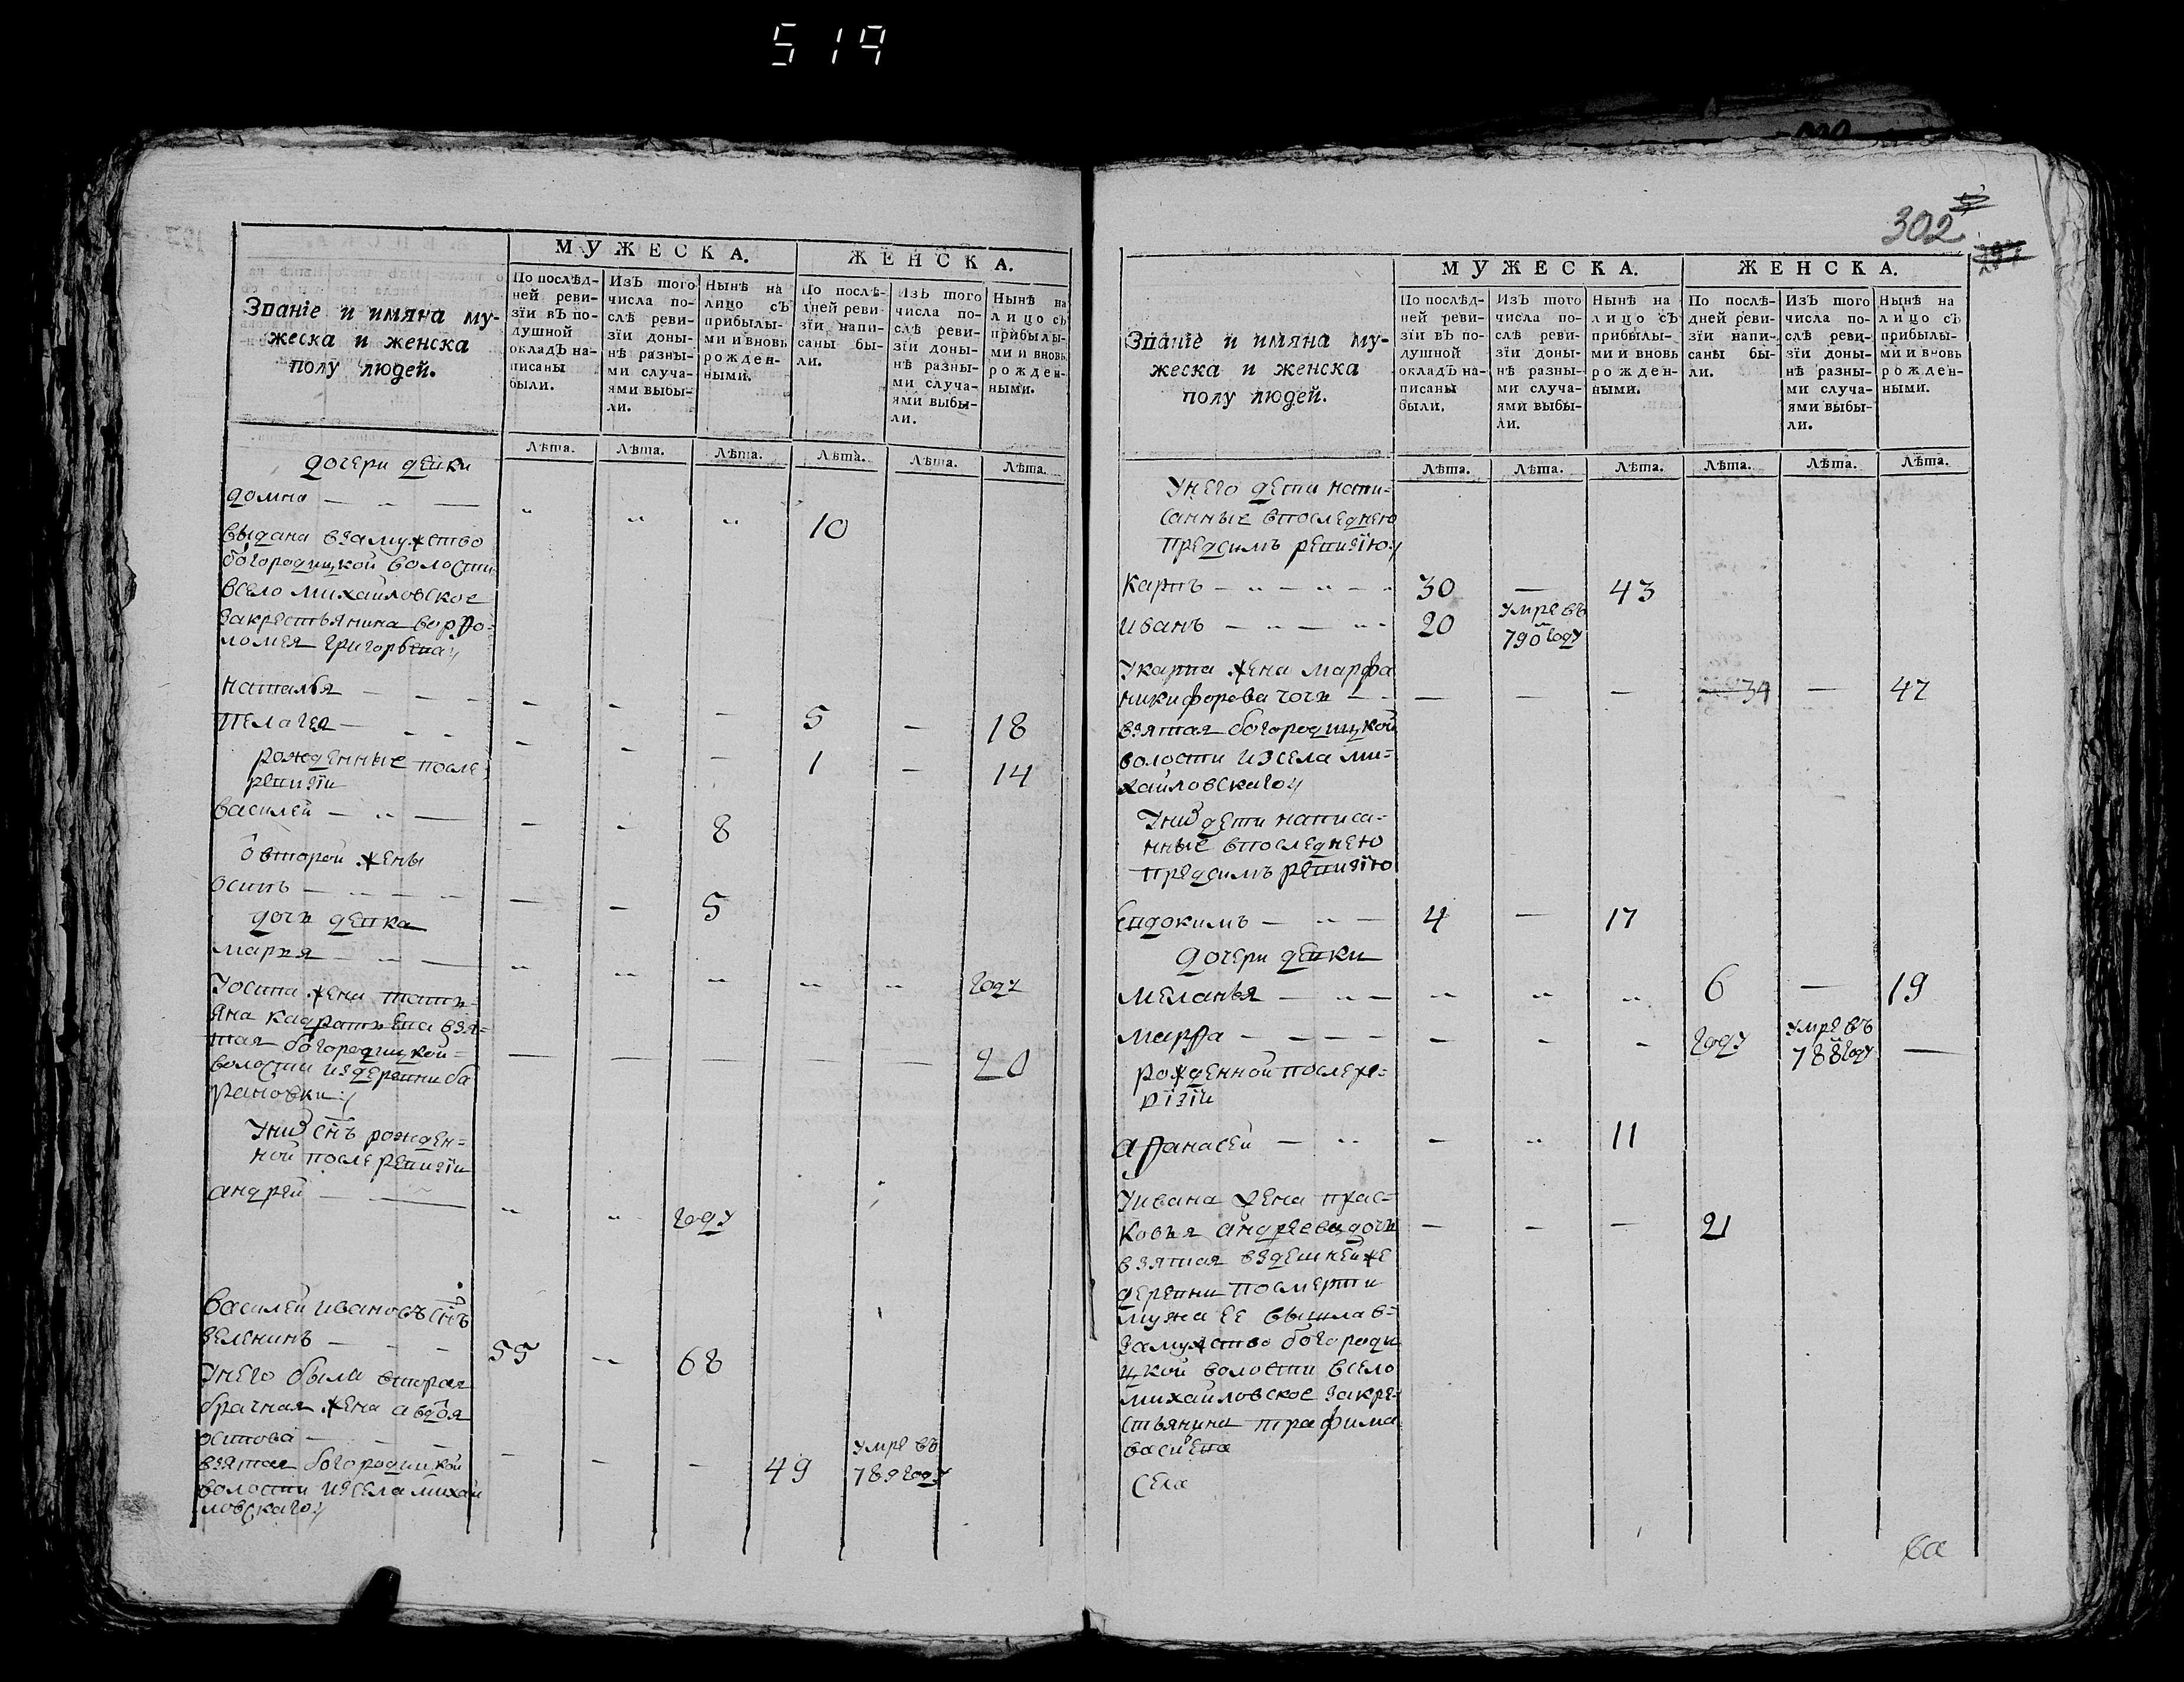 519
МУЖЕСКА. ЖЕНСКА.
Званіе и имяна му-
жеска и женска
полу людей.
По послѣд-
ней реви-
зїи вЪ по-
душной
окладЪ на-
писаны
были.
ИзЪ того
числа по-
слѣ реви-
зїи доны-
нѣ разны-
ми случа-
ями выбы-
ли.
Нынѣ на
лицо сЪ
прибылы-
ми и вновь
рожден-
ными.
По послѣ-
дней реви-
зїи напи-
саны бы-
ли.
ИзЪ того
числа по-
слѣ реви-
зїи доны-
нѣ разны-
ми случа-
ями выбы-
ли.
Нынѣ на
лицо сЪ
прибылы-
ми и вновь
рожден-
ными.
Лѣта. Лѣта. Лѣта. Лѣта. Лѣта. Лѣта.
дочери девки
домна 10
выдана взамужство
богородицкой волости
всело михайловское
закрестьянина варѳо-
ломея григорьева
наталья 5 18
пелагея 1 14
рожденные после
ревизїи
василей 8
о второй жены
осипъ 5
дочь девка
марья году
уосипа жена тать-
яна кадратьева взя-
тая богородицкой
волости издеревни ба
рановки 20
уних снъ рожден-
ной после ревизїи
андрей году
василей ивановъ снъ
зеленинъ 55 68
унего была вторая
брачная жена авдоя
осипова 49 умре въ
789 году
взятая богородицкой
волости изсела михай
ловскаго
302
МУЖЕСКА. ЖЕНСКА.
Званіе и имяна му-
жеска и женска
полу людей.
По послѣд-
ней реви-
зїи вЪ по-
душной
окладЪ на-
писаны
были.
ИзЪ того
числа по-
слѣ реви-
зїи доны-
нѣ разны-
ми случа-
ями выбы-
ли.
Нынѣ на
лицо сЪ
прибылы-
ми и вновь
рожден-
ными.
По послѣ-
дней реви-
зїи напи-
саны бы-
ли.
ИзЪ того
числа по-
слѣ реви-
зїи доны-
нѣ разны-
ми случа-
ями выбы-
ли.
Нынѣ на
лицо сЪ
прибылы-
ми и вновь
рожден-
ными.
Лѣта. Лѣта. Лѣта. Лѣта. Лѣта. Лѣта.
унего дети напи-
санные впоследнею
предсимъ ревизїю
карпъ 30 43
иванъ 20 умре въ
790 году
укарпа жена марфа
никифорова дочь 34 47
взятая богородицкой
волости изсела ми-
хайловскаго
уних дети написа-
нные впоследнею
предсимъ ревизїю
евдокимъ 4 17
дочери девки
меланья 6 19
марѳа году умре въ
788 году
рожденной после ре-
визїи
аѳанасей 11
уивана жена прас-
ковья андреева дочь 21
взятая вздешней же
деревни посмерти
мужа ее вышла в-
замужство богороди
цкой волости всело
михайловское закре-
стьянина трафима
васильева
села